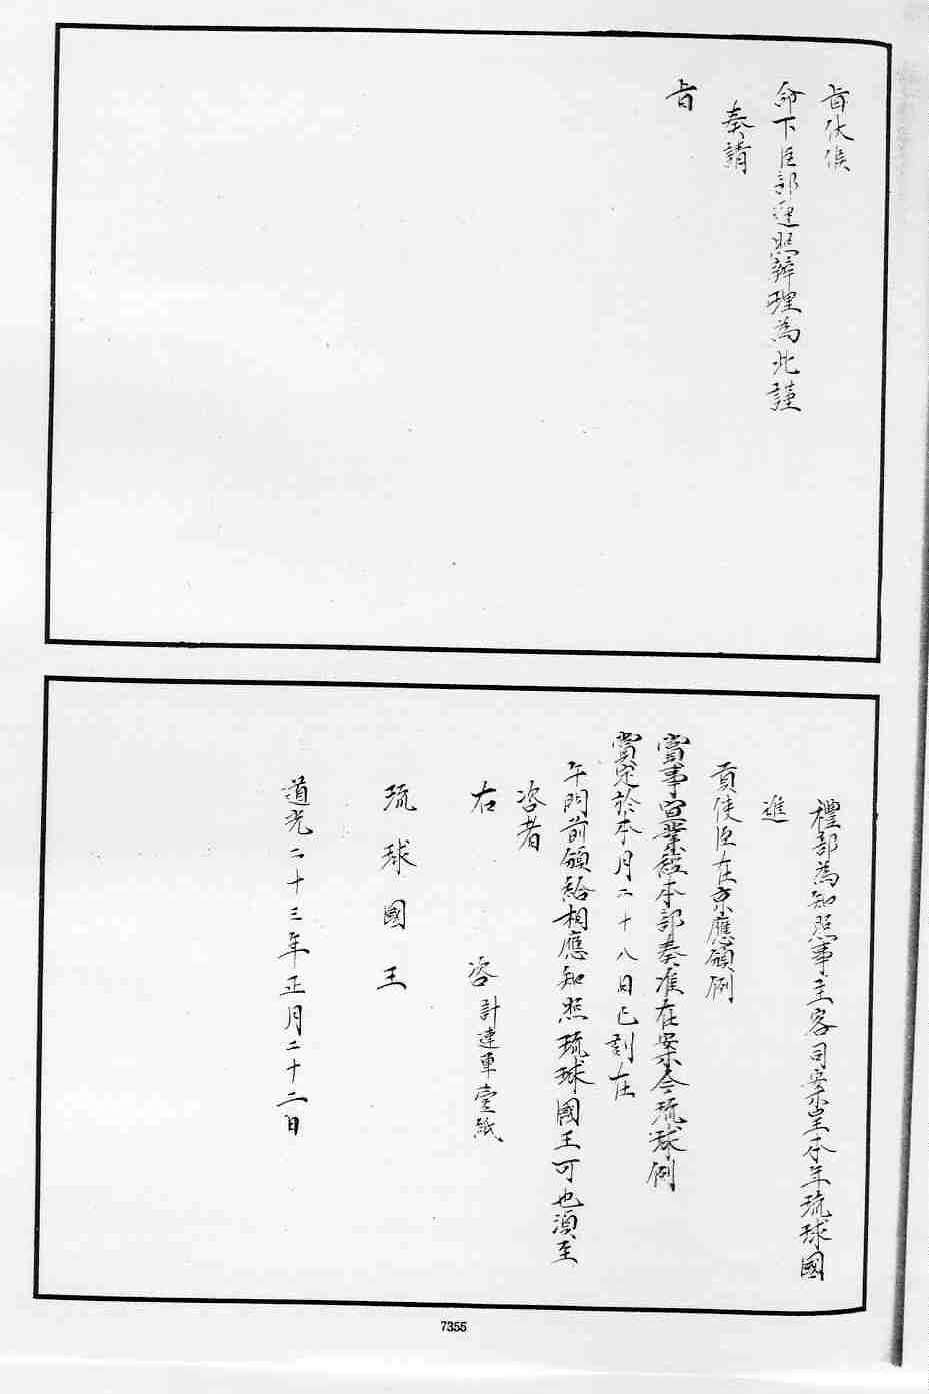 旨伏候
命下臣部遵照辦理為此謹
奏請
旨
禮部為知照事主客司案呈本年琉球國
進
貢使臣在京應領例
賞事宜業經本部奏准在案今琉球例
賞定於本月二十八日巳刻在
午門前頒給相應知照琉球國王可也須至
咨者
右咨計連單壹紙
琉球國王
道光二十三年正月二十二日
7355